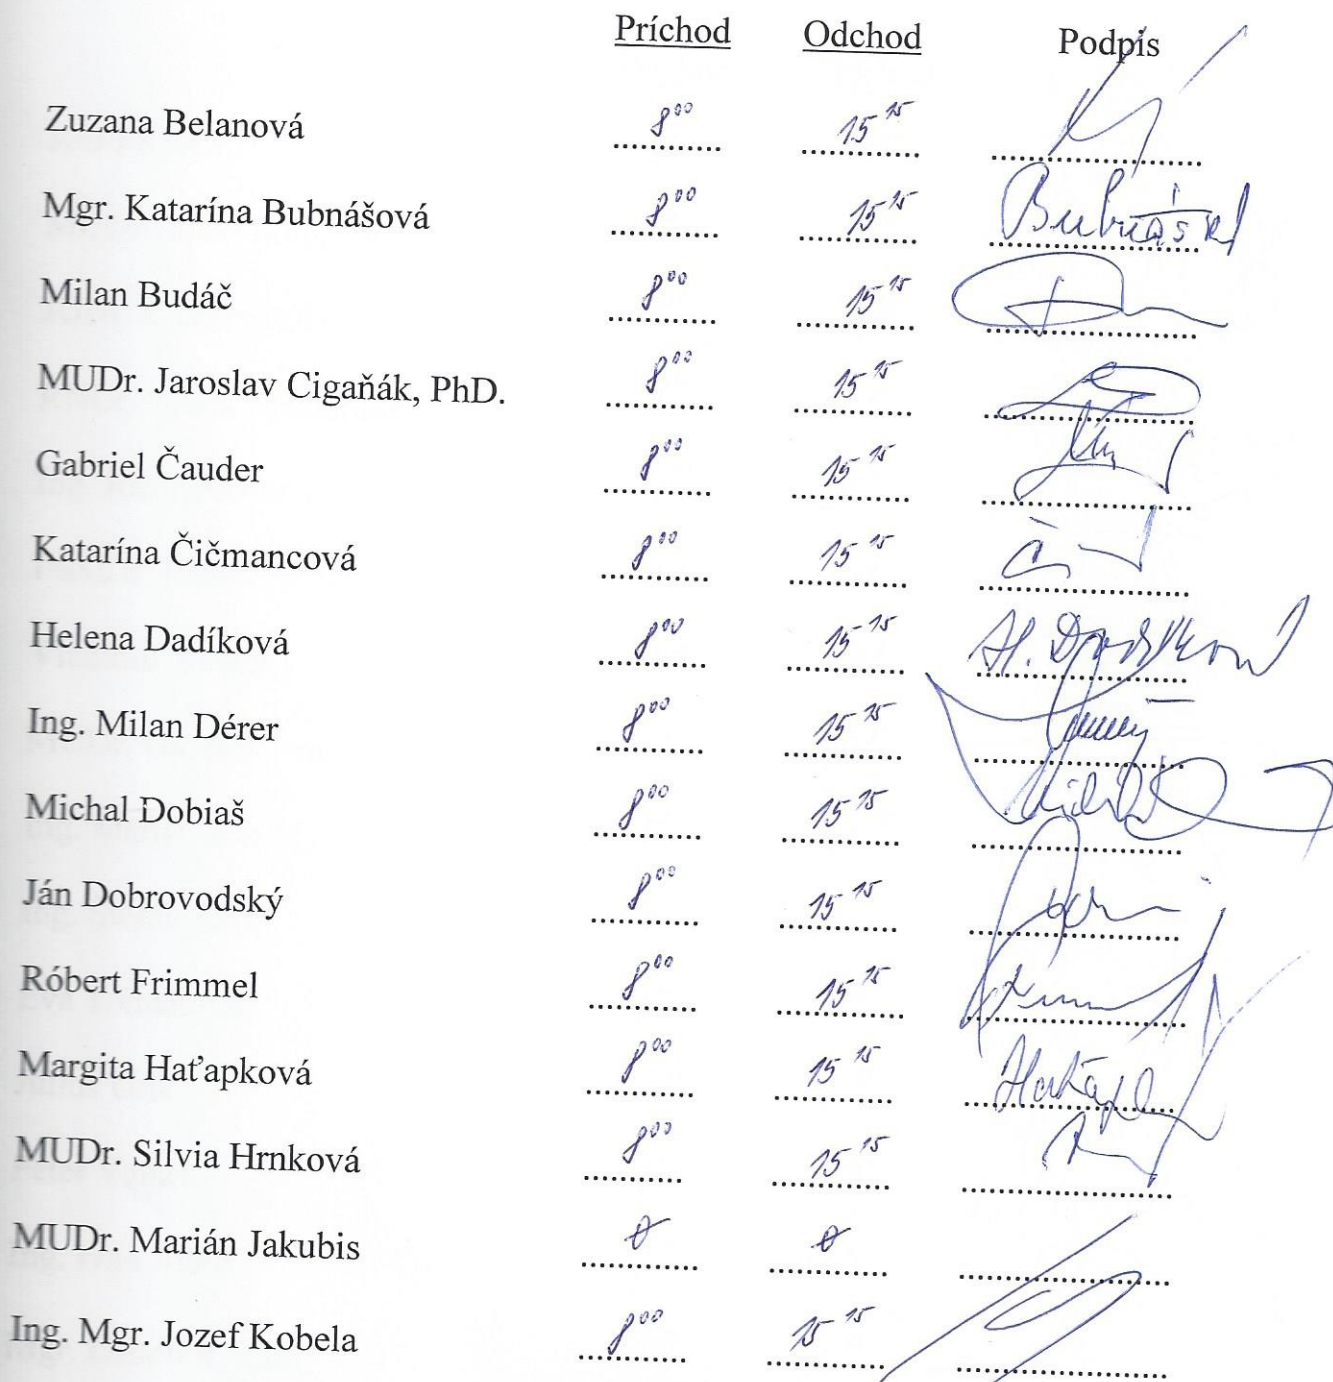 Príchod Odchod Podpis
Zuzana Belanová 8⁰⁰ 15¹⁵
Mgr. Katarína Bubnášová 8⁰⁰ 15¹⁵
Milan Budáč 8⁰⁰ 15¹⁵
MUDr. Jaroslav Cigaňák, PhD. 8⁰⁰ 15¹⁵
Gabriel Čauder 8⁰⁰ 15¹⁵
Katarína Čičmancová 8⁰⁰ 15¹⁵
Helena Dadíková 8⁰⁰ 15¹⁵
Ing. Milan Dérer 8⁰⁰ 15¹⁵
Michal Dobiaš 8⁰⁰ 15¹⁵
Ján Dobrovodský 8⁰⁰ 15¹⁵
Róbert Frimmel 8⁰⁰ 15¹⁵
Margita Haťapková 8⁰⁰ 15¹⁵
MUDr. Silvia Hrnková 8⁰⁰ 15¹⁵
MUDr. Marián Jakubis
Ing. Mgr. Jozef Kobela 8⁰⁰ 15¹⁵